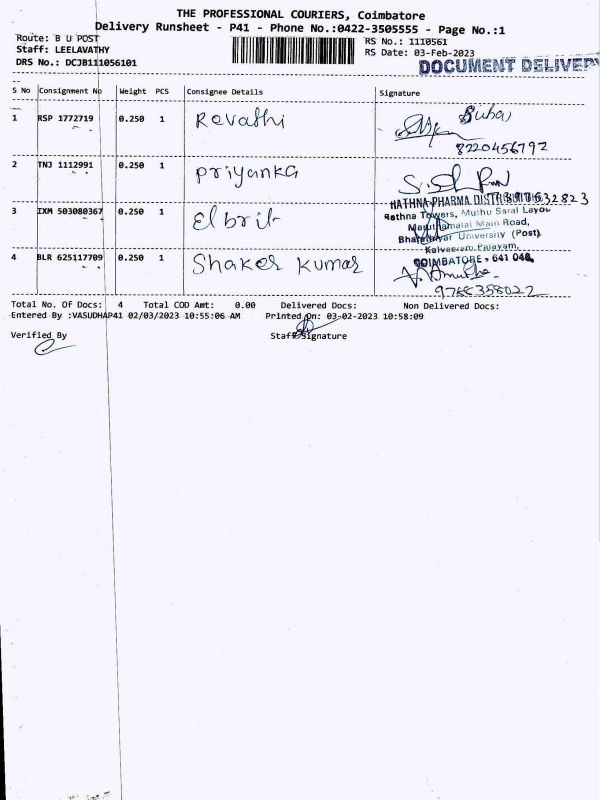 THE PROFESSIONAL COURIERS, Coimbatore
Delivery Runsheet - P41 - Phone No.:0422-3505555 - Page No.:1
Route: B U POST
RS No.: 1110561
Staff: LEELAVATHY
RS Date: 03-Feb-2023
DRS No.: DCJB111056101
DOCUMENT DELIVERY
S No Consignment No Weight PCS Consignee Details Signature
1 RSP 1772719 0.250 1 Revathi
8220456792
2 TNJ 1112991 0.250 1 Priyanka
RATHNA PHARMA
3 IXM 503080367 0.250 1 Elbrit
Rathna Towers, Muthu Saral Layou
Maruthamalai Main Road,
Bharathiyar University (Post)
Kalveeram Palayam,
COIMBATORE - 641 046.
4 BLR 625117709 0.250 1 Shaker Kumar
9768358022
Total No. Of Docs: 4 Total COD Amt: 0.00 Delivered Docs: Non Delivered Docs:
Entered By :VASUDHAP41 02/03/2023 10:55:06 AM Printed On: 03-02-2023 10:58:09
Verified By Staff Signature